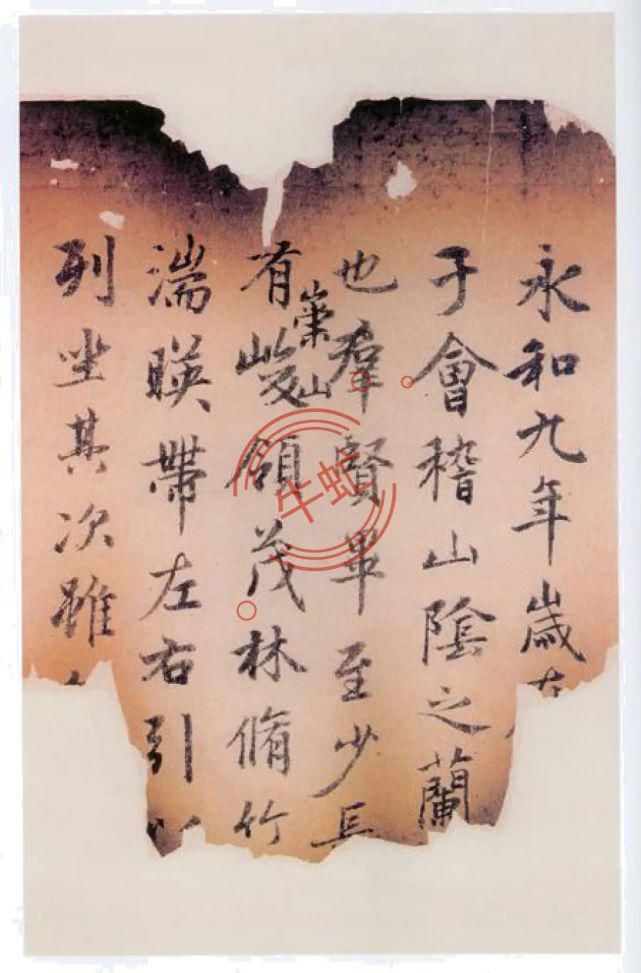 永和九年歲在
于會稽山陰之蘭
也羣賢畢至少長
有崇山峻領茂林脩竹
湍暎帶左右引以
列坐其次雖